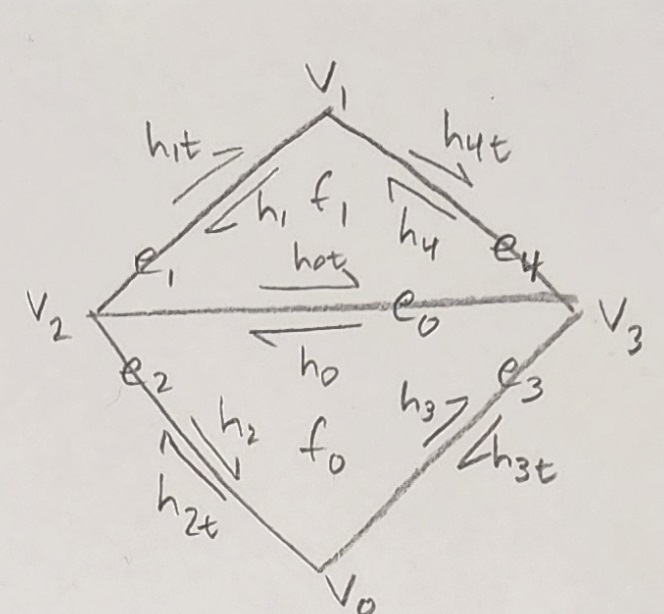 V1
h1t
h4t
h1
f1
h4
e1
e4
h0t
V2
e0
V3
h0
e2
e3
h3
h2
f0
h3t
h2t
V0